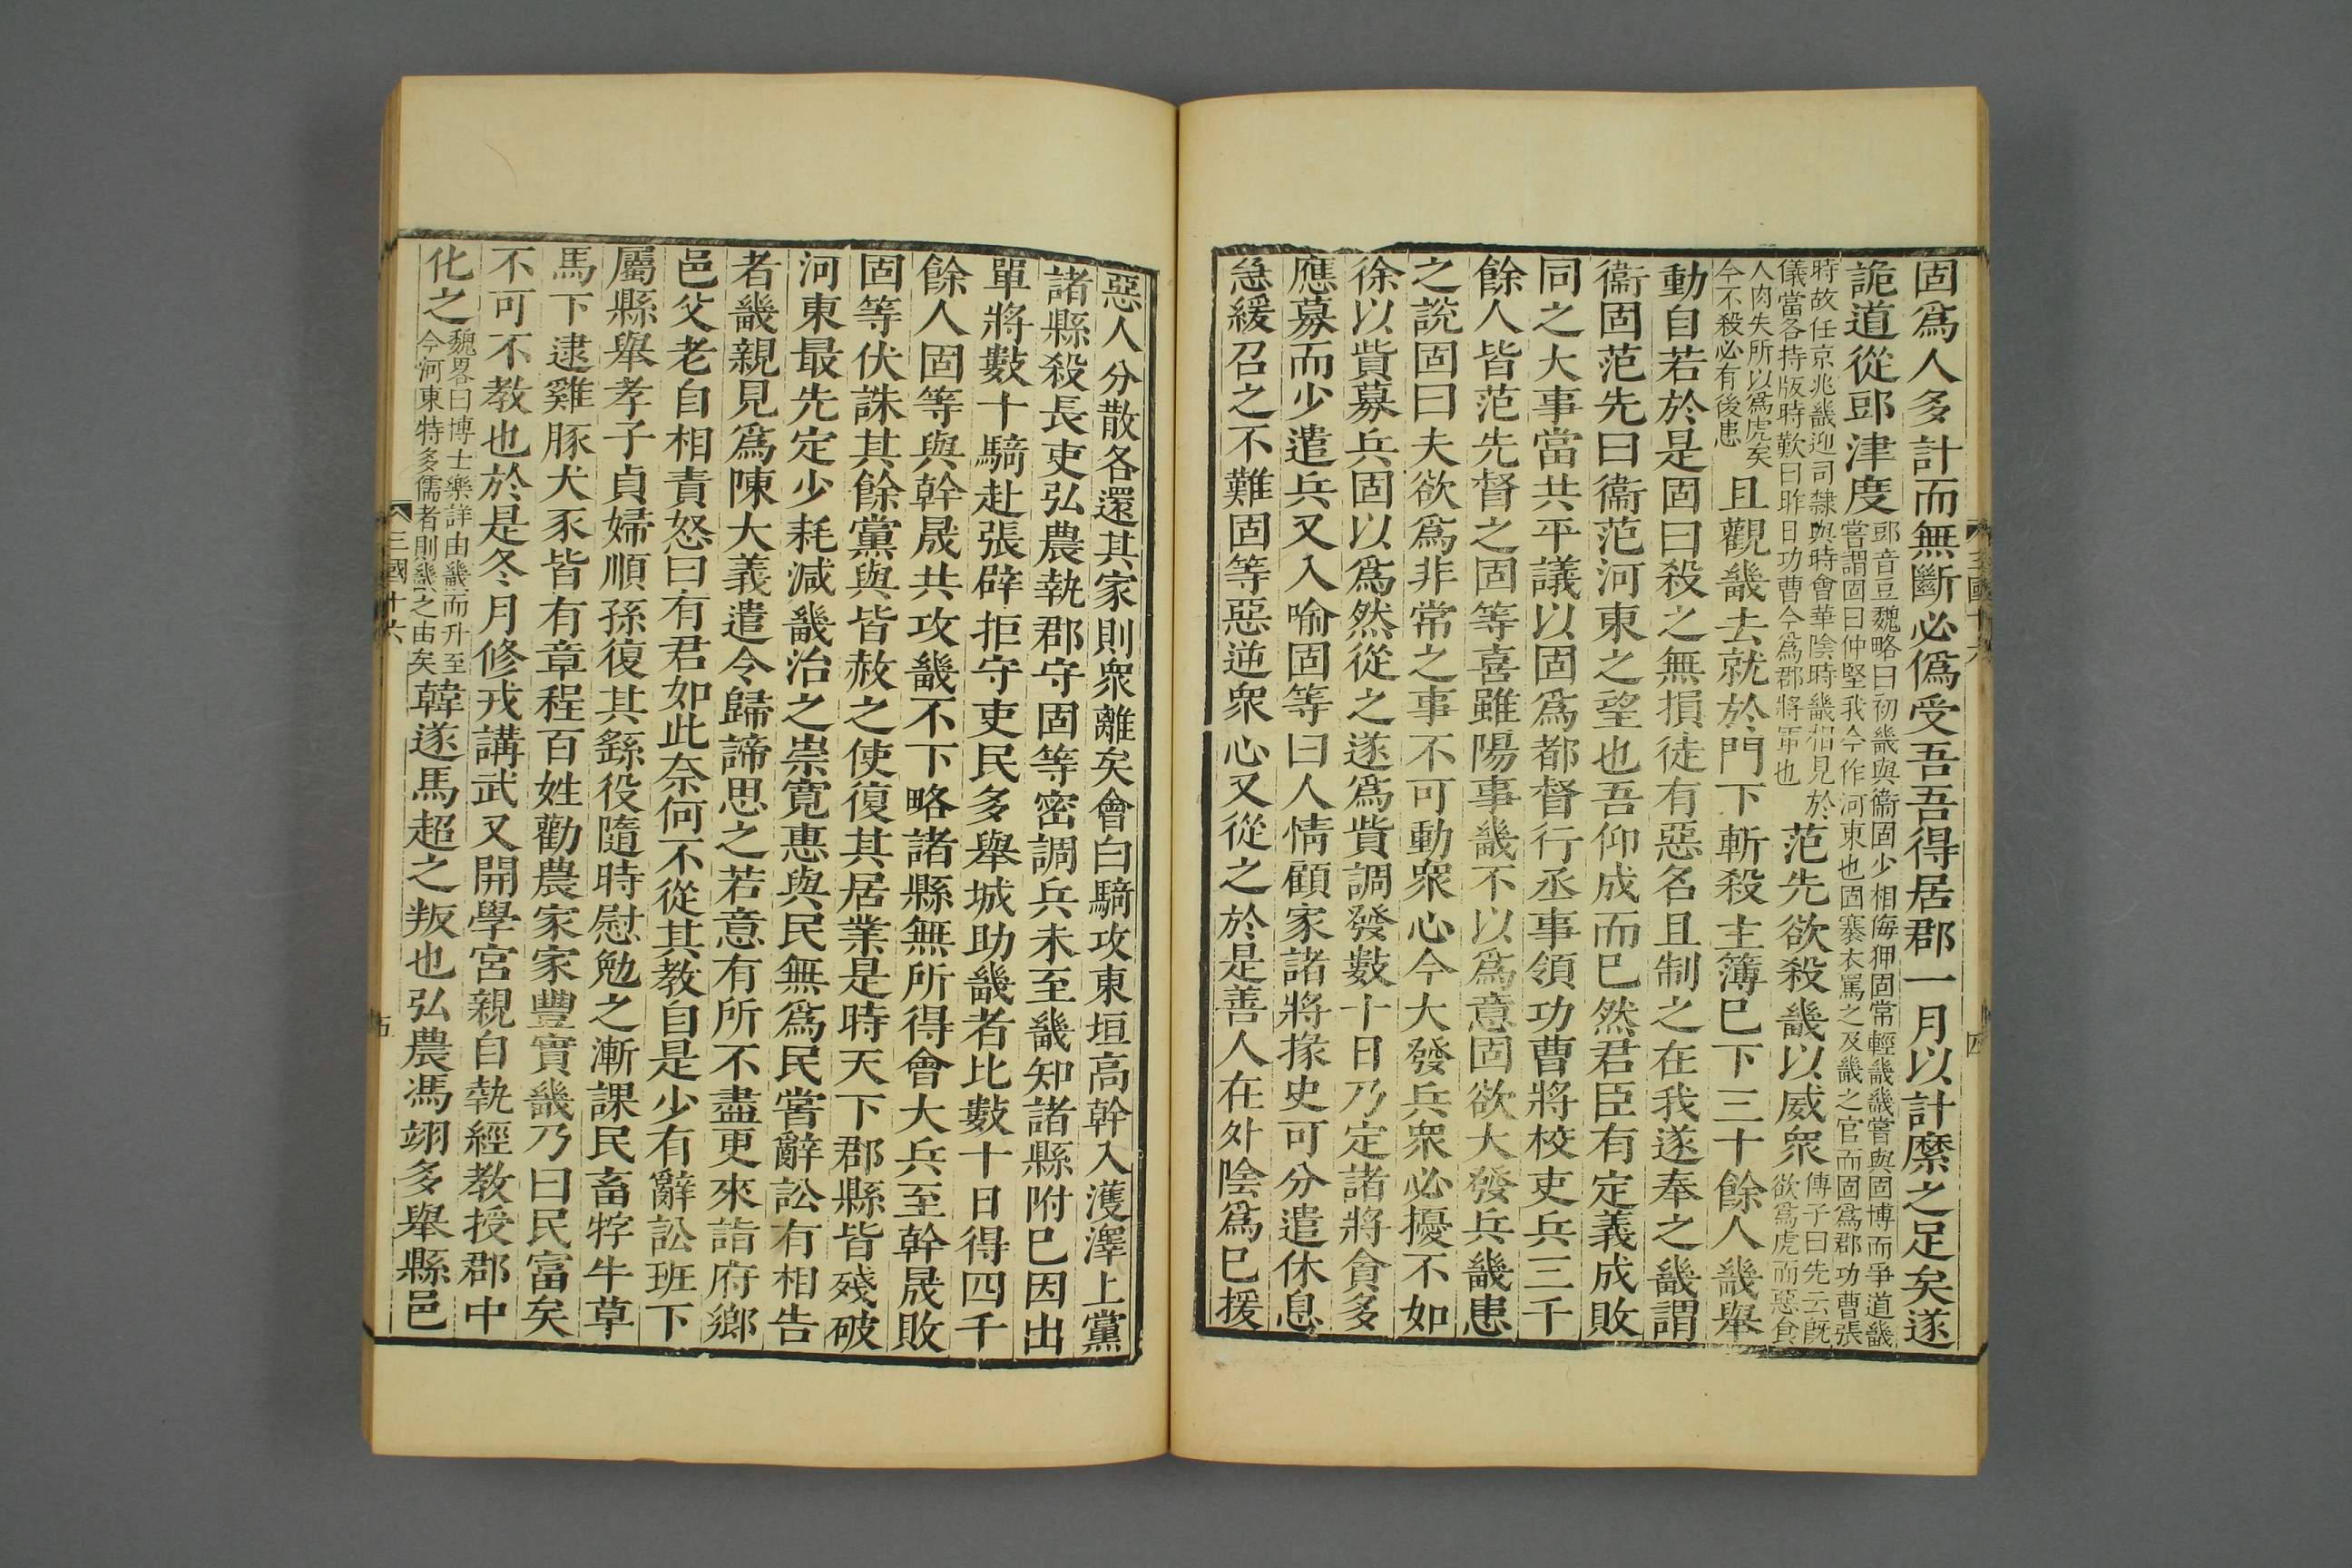 固爲人多計而無斷必僞受吾吾得居郡一月以計縻之足矣遂
詭道從郖津度郖音豆魏略曰初畿與衞固少相侮狎固常輕畿畿嘗與固博而爭道畿
嘗謂固曰仲堅我今作河東也固褰衣罵之及畿之官而固爲郡功曹張
時故任京兆畿迎司隸與時會華陰時畿相見於
儀當各持版時歎曰昨日功曹今爲郡將軍也
范先欲殺畿以威衆傅子曰先云旣
欲爲虎而惡食
人肉失所以爲虎矣
今不殺必有後患
且觀畿去就於門下斬殺主簿巳下三十餘人畿舉
動自若於是固曰殺之無損徒有惡名且制之在我遂奉之畿謂
衞固范先曰衞范河東之望也吾仰成而巳然君臣有定義成敗
同之大事當共平議以固爲都督行丞事領功曹將校吏兵三千
餘人皆范先督之固等喜雖陽事畿不以爲意固欲大發兵畿患
之說固曰夫欲爲非常之事不可動衆心今大發兵衆必擾不如
徐以貲募兵固以爲然從之遂爲貲調發數十日乃定諸將貪多
應募而少遣兵又入喻固等曰人情顧家諸將掾史可分遣休息
急緩召之不難固等惡逆衆心又從之於是善人在外陰爲巳援
三國十六
四
惡人分散各還其家則衆離矣會白騎攻東垣高幹入濩澤上黨
諸縣殺長吏弘農執郡守固等密調兵未至畿知諸縣附巳因出
單將數十騎赴張辟拒守吏民多舉城助畿者比數十日得四千
餘人固等與幹晟共攻畿不下略諸縣無所得會大兵至幹晟敗
固等伏誅其餘黨與皆赦之使復其居業是時天下郡縣皆殘破
河東最先定少耗減畿治之崇寬惠與民無爲民嘗辭訟有相告
者畿親見爲陳大義遣令歸諦思之若意有所不盡更來詣府鄉
邑父老自相責怒曰有君如此奈何不從其教自是少有辭訟班下
屬縣舉孝子貞婦順孫復其繇役隨時慰勉之漸課民畜牸牛草
馬下逮雞豚犬豕皆有章程百姓勸農家家豐實畿乃曰民富矣
不可不教也於是冬月修戎講武又開學宮親自執經教授郡中
化之魏畧曰博士樂詳由畿而升至
今河東特多儒者則畿之由矣
韓遂馬超之叛也弘農馮翊多舉縣邑
三國十六
五